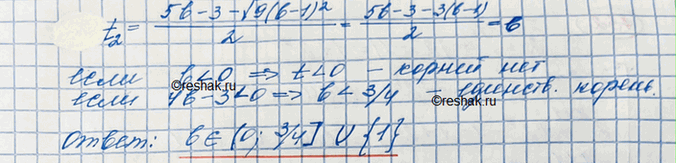 t₂ = (5b-3-√9(b-1)²)/2 = (5b-3-3(b-1))/2 = b
если b<0 ⇒ t<0 – корней нет
если 4b-3<0 ⇒ b<3/4 – единств. корень.
Ответ: b∈(0; 3/4] ∪ {1}
©reshak.ru
©reshak.ru
©reshak.ru